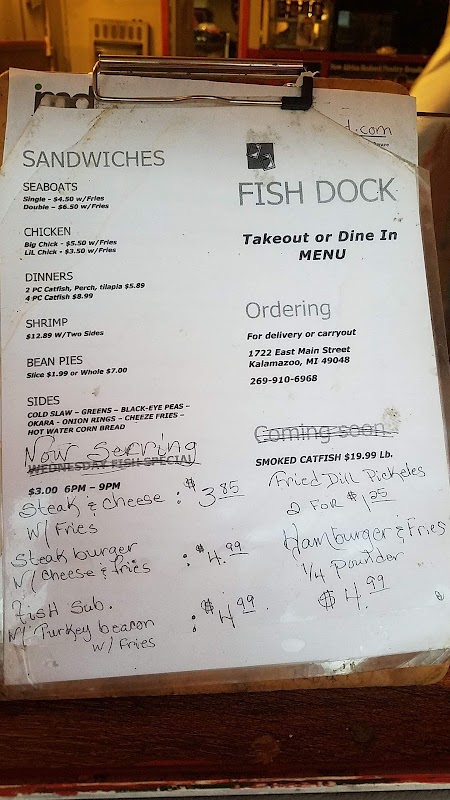 SANDWICHES
SEABOATS
Single - $4.50 w/Fries
Double – $6.50 w/Fries
CHICKEN
Big Chick - $5.50 w/Fries
LiL Chick - $3.50 w/Fries
DINNERS
2 PC Catfish, Perch, tilapia $5.89
4 PC Catfish $8.99
SHRIMP
$12.89 W/Two Sides
BEAN PIES
Slice $1.99 or Whole $7.00
SIDES
COLD SLAW – GREENS – BLACK-EYE PEAS –
OKARA - ONION RINGS – CHEEZE FRIES –
HOT WATER CORN BREAD
Now Serving
WEDNESDAY FISH SPECIAL
$3.00 6PM – 9PM
Steak & Cheese : $3.85
W/ Fries
Steak burger
W/ Cheese & Fries : $4.99
Fish Sub.
W/ Turkey beacon : $4.99
w/ Fries
.com
FISH DOCK
Takeout or Dine In
MENU
Ordering
For delivery or carryout
1722 East Main Street
Kalamazoo, MI 49048
269-910-6968
Coming soon
SMOKED CATFISH $19.99 Lb.
Fried Dill Pickeles
2 FOR $1.25
Hamburger & Fries
1/4 Pounder
$4.99